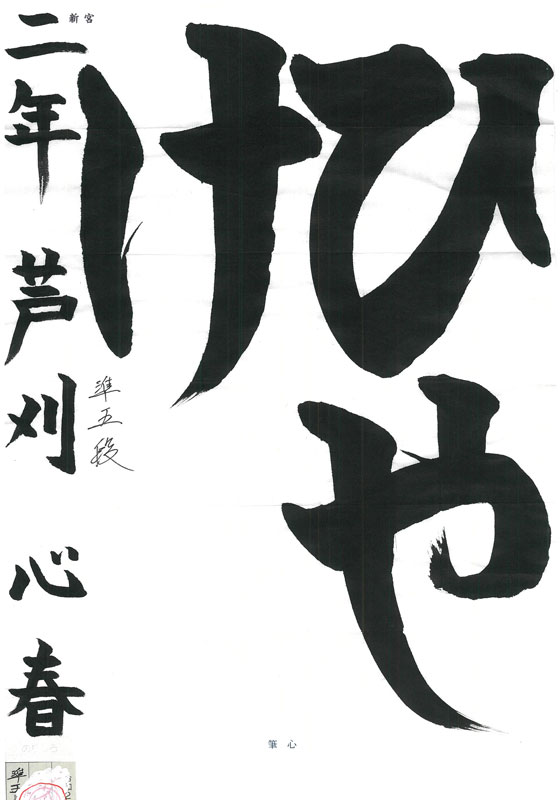 ひや
け
二年 芦刈 心春
準五段
新宮
心筆
準五